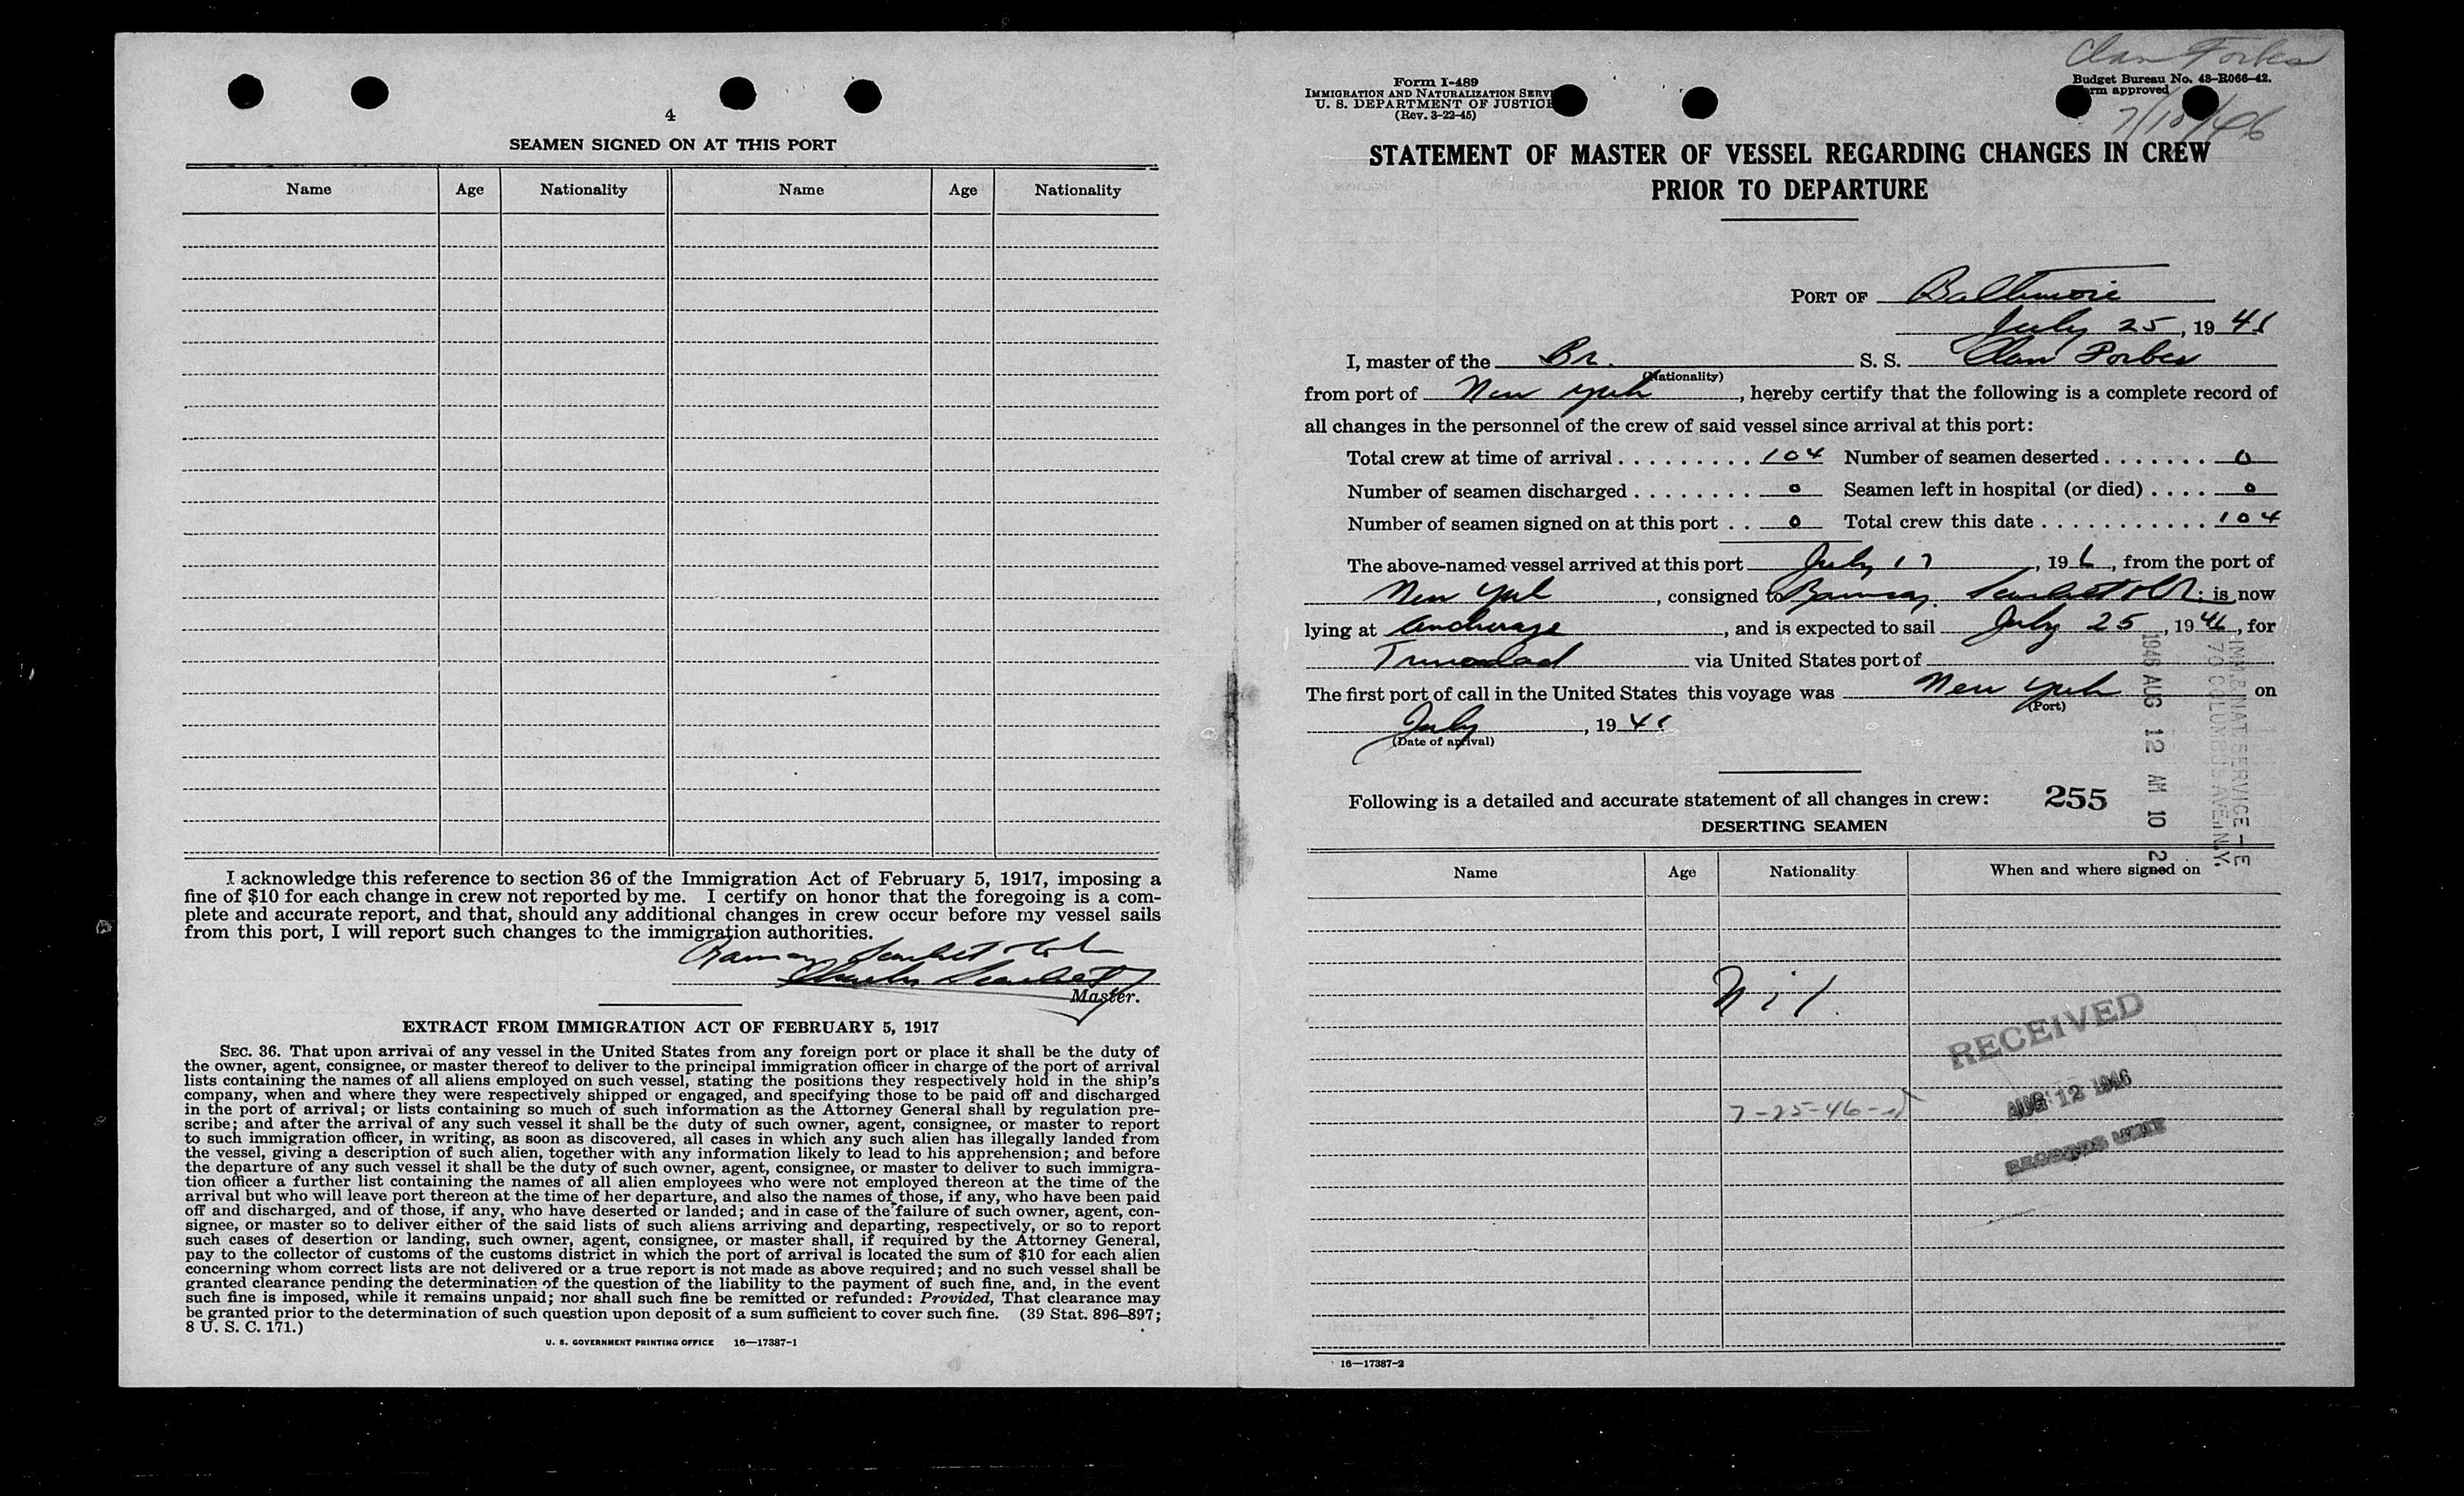 4
SEAMEN SIGNED ON AT THIS PORT
Name Age Nationality Name Age Nationality
I acknowledge this reference to section 36 of the Immigration Act of February 5, 1917, imposing a
fine of $10 for each change in crew not reported by me. I certify on honor that the foregoing is a com-
plete and accurate report, and that, should any additional changes in crew occur before my vessel sails
from this port, I will report such changes to the immigration authorities.
Ramsay Scarlett & Co
Charles Scarlett
Master.
EXTRACT FROM IMMIGRATION ACT OF FEBRUARY 5, 1917
SEC. 36. That upon arrival of any vessel in the United States from any foreign port or place it shall be the duty of
the owner, agent, consignee, or master thereof to deliver to the principal immigration officer in charge of the port of arrival
lists containing the names of all aliens employed on such vessel, stating the positions they respectively hold in the ship's
company, when and where they were respectively shipped or engaged, and specifying those to be paid off and discharged
in the port of arrival; or lists containing so much of such information as the Attorney General shall by regulation pre-
scribe; and after the arrival of any such vessel it shall be the duty of such owner, agent, consignee, or master to report
to such immigration officer, in writing, as soon as discovered, all cases in which any such alien has illegally landed from
the vessel, giving a description of such alien, together with any information likely to lead to his apprehension; and before
the departure of any such vessel it shall be the duty of such owner, agent, consignee, or master to deliver to such immigra-
tion officer a further list containing the names of all alien employees who were not employed thereon at the time of the
arrival but who will leave port thereon at the time of her departure, and also the names of those, if any, who have been paid
off and discharged, and of those, if any, who have deserted or landed; and in case of the failure of such owner, agent, con-
signee, or master so to deliver either of the said lists of such aliens arriving and departing, respectively, or so to report
such cases of desertion or landing, such owner, agent, consignee, or master shall, if required by the Attorney General,
pay to the collector of customs of the customs district in which the port of arrival is located the sum of $10 for each alien
concerning whom correct lists are not delivered or a true report is not made as above required; and no such vessel shall be
granted clearance pending the determination of the question of the liability to the payment of such fine, and, in the event
such fine is imposed, while it remains unpaid; nor shall such fine be remitted or refunded: Provided, That clearance may
be granted prior to the determination of such question upon deposit of a sum sufficient to cover such fine. (39 Stat. 896-897;
8 U. S. C. 171.)
U. S. GOVERNMENT PRINTING OFFICE 16—17387-1
Clan Forbes
Form I-489
IMMIGRATION AND NATURALIZATION SERV
U. S. DEPARTMENT OF JUSTICE
(Rev. 3-22-45)
Budget Bureau No. 43-R066-42.
rm approved
7/10/46
STATEMENT OF MASTER OF VESSEL REGARDING CHANGES IN CREW
PRIOR TO DEPARTURE
PORT OF Baltimore
July 25, 1946
I, master of the Br. S. S. Clan Forbes
(Nationality)
from port of New York, hereby certify that the following is a complete record of
all changes in the personnel of the crew of said vessel since arrival at this port:
Total crew at time of arrival 104 Number of seamen deserted 0
Number of seamen discharged 0 Seamen left in hospital (or died) 0
Number of seamen signed on at this port 0 Total crew this date 104
The above-named vessel arrived at this port July 17, 196, from the port of
New York, consigned to Ramsay Scarlett & Co; is now
lying at Anchorage, and is expected to sail July 25, 1946, for
Trinidad via United States port of
The first port of call in the United States this voyage was New York on
(Port)
July, 1946
(Date of arrival)
Following is a detailed and accurate statement of all changes in crew: 255
1946 AUG 12 AM 10 2
IMM. & NAT. SERVICE — E
70 COLUMBUS AVE., N.Y.
DESERTING SEAMEN
Name Age Nationality When and where signed on
Nil.
RECEIVED
AUG 12 1946
RECORDS UNIT
7-25-46
16—17387-2